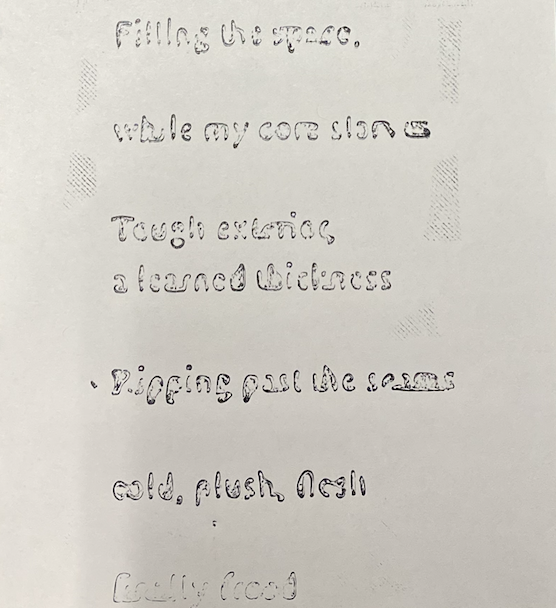 Filling the space,
while my core
Tough exterior,
a learned thickness
Ripping past the seams
cold, plush, flesh
finally freed